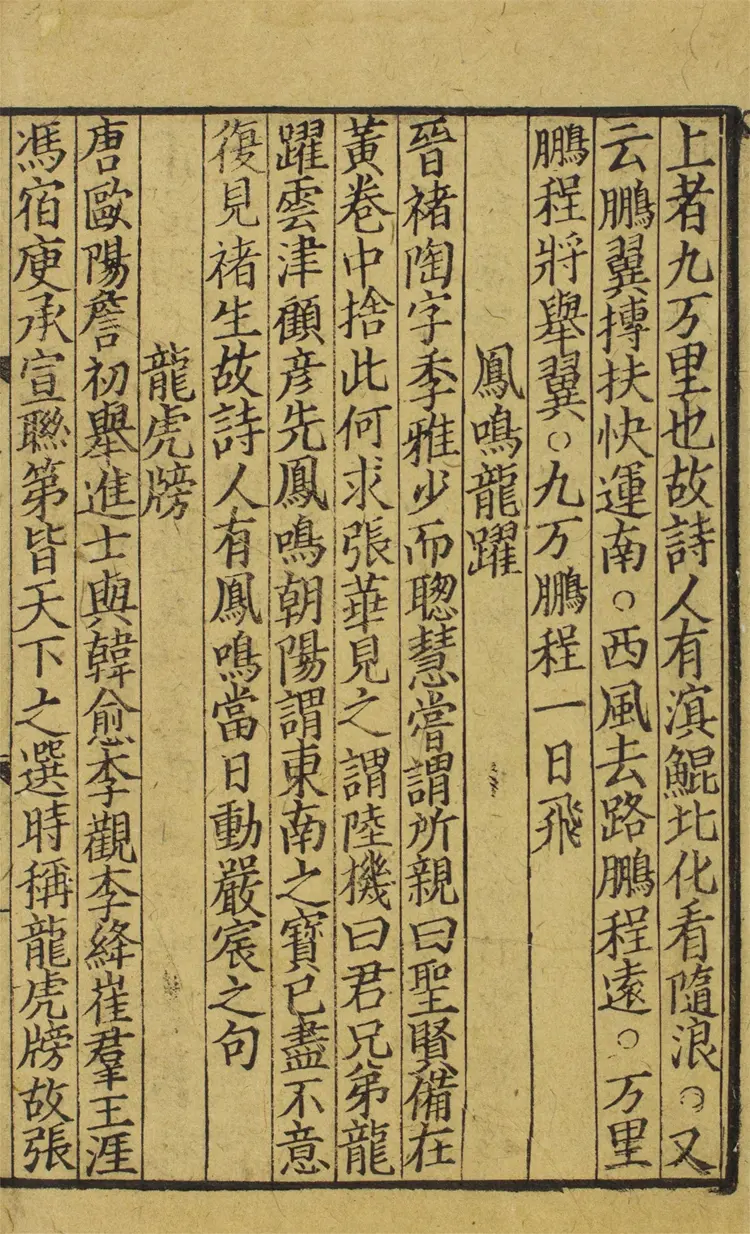 上者九万里也故詩人有滇鯤北化看隨浪○又
云鵬翼摶扶快運南○西風去路鵬程遠○万里
鵬程將舉翼○九万鵬程一日飛
鳳鳴龍躍
晉褚陶字季雅少而聦慧嘗謂所親曰聖賢備在
黃卷中捨此何求張華見之謂陸機曰君兄弟龍
躍雲津顧彦先鳳鳴朝陽謂東南之寶已盡不意
復見褚生故詩人有鳳鳴當日動嚴宸之句
龍虎牓
唐歐陽詹初舉進士與韓愈李觀李絳崔羣王涯
馮宿庾承宣聮第皆天下之選時稱龍虎牓故張